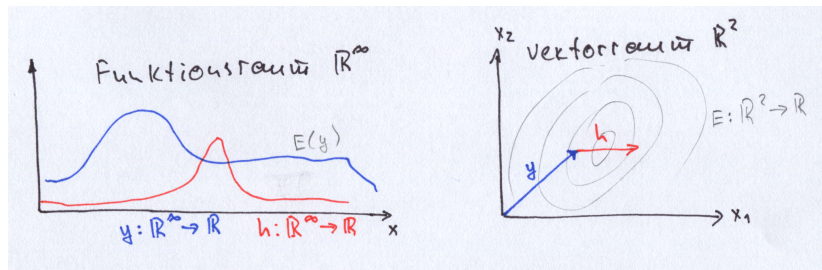 Funktionsraum ℝ^∞
E(y)
x
y : ℝ^∞ → ℝ
h : ℝ^∞ → ℝ
x₂
Vektorraum ℝ²
E : ℝ² → ℝ
h
y
x₁